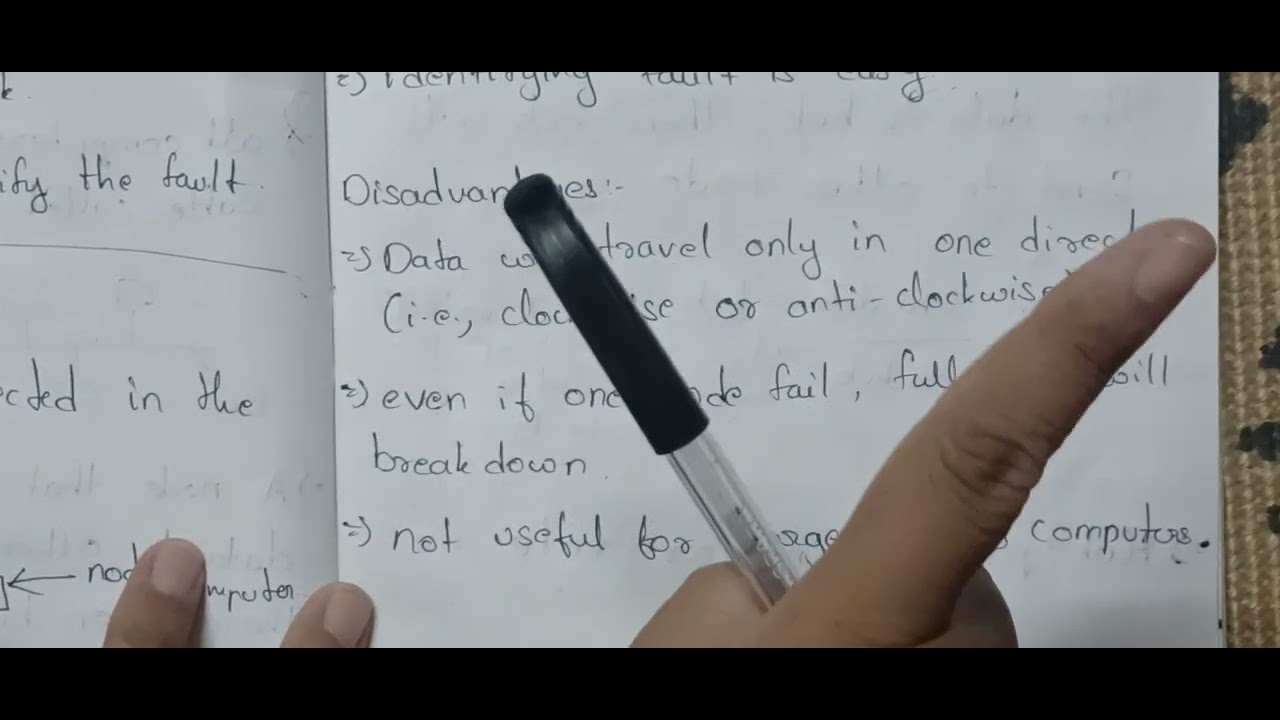 ify the fault.
ected in the
=) identifying fault is easy.
Disadvan es:-
=) Data travel only in one direc
(i.e., clockwise or anti-clockwise
=) even if one node fail, full will
break down.
=) not useful for computers.